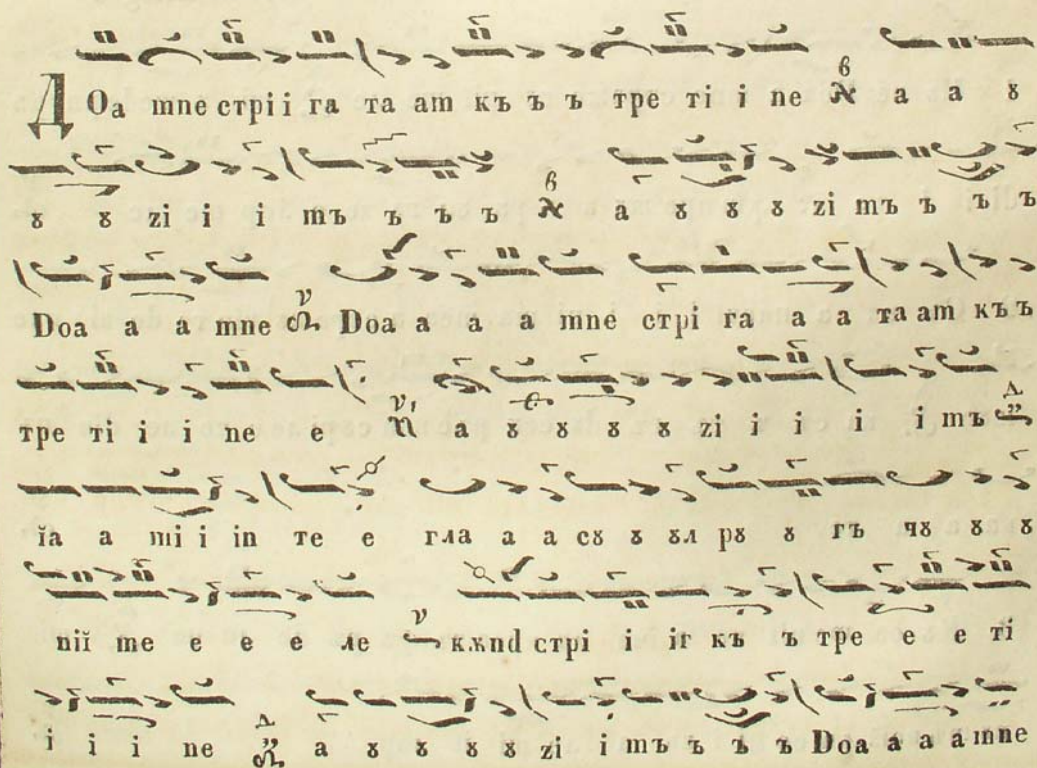 ДОа mne стрії га та am къ ъ ъ тре ті і ne а а ȣ
ȣ ȣ zі і і і mъ ъ ъ ъ ъ а ȣ ȣ ȣ zі mъ ъ ъ ъ
Doa а а mne Doa а а а mne стрі га а а та am къ ъ
тре ті і і ne е а ȣ ȣ ȣ ȣ zі і і і і mъ
ĭа а mі і іn те е гла а а сȣ ȣ ȣл рȣ ȣ гъ чȣ ȣ ȣ
nії me е е е ле кѫnd стрі і іг къ ъ тре е е ті
і і і ne а ȣ ȣ ȣ ȣ zі і mъ ъ ъ ъ Doa а а а mne